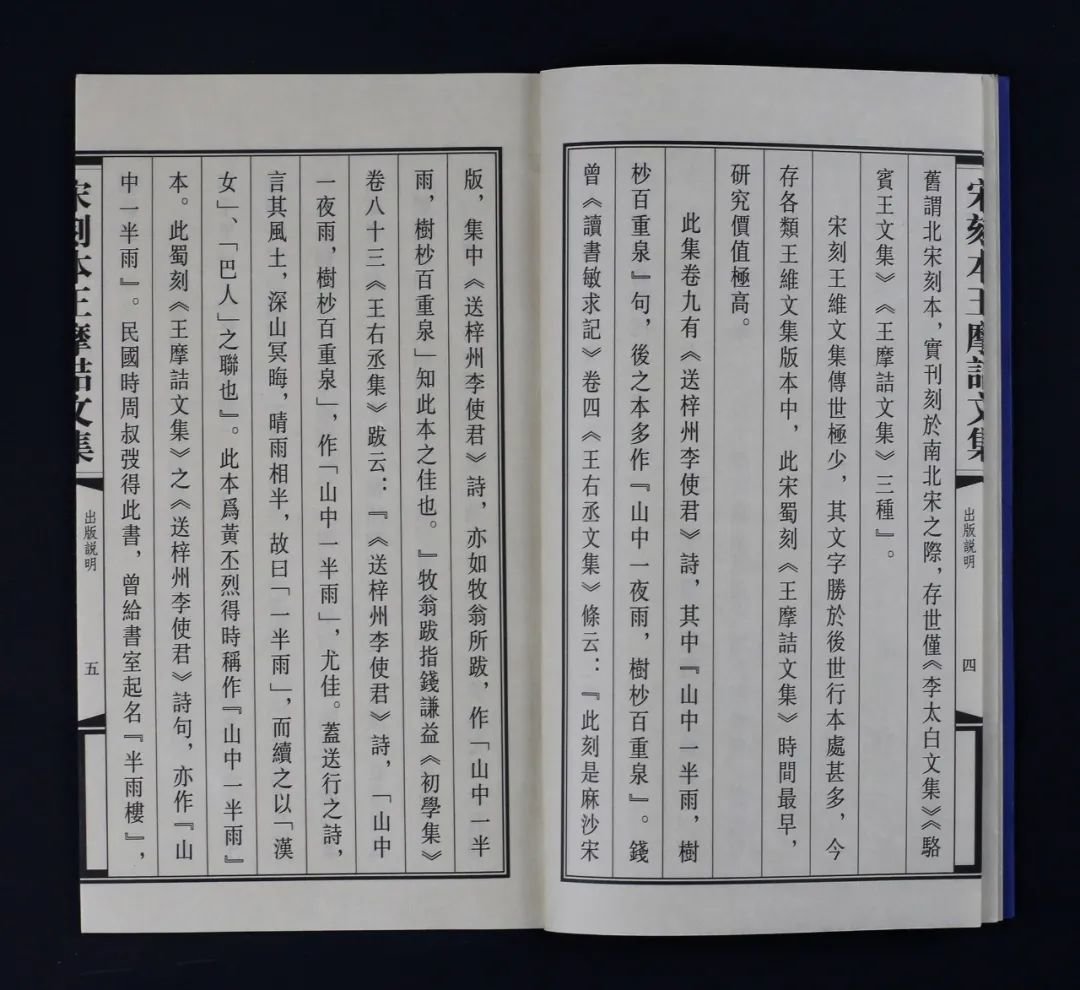 宋刻本王摩詰文集
出版説明
四
舊謂北宋刻本，實刊刻於南北宋之際，存世僅《李太白文集》《駱
賓王文集》《王摩詰文集》三種』。
宋刻王維文集傳世極少，其文字勝於後世行本處甚多，今
存各類王維文集版本中，此宋蜀刻《王摩詰文集》時間最早，
研究價值極高。
此集卷九有《送梓州李使君》詩，其中『山中一半雨，樹
杪百重泉』句，後之本多作『山中一夜雨，樹杪百重泉』。錢
曾《讀書敏求記》卷四《王右丞文集》條云：『此刻是麻沙宋
版，集中《送梓州李使君》詩，亦如牧翁所跋，作「山中一半
雨，樹杪百重泉」知此本之佳也。』牧翁跋指錢謙益《初學集》
卷八十三《王右丞集》跋云：『《送梓州李使君》詩，「山中
一夜雨，樹杪百重泉」，作「山中一半雨」，尤佳。蓋送行之詩，
言其風土，深山冥晦，晴雨相半，故曰「一半雨」，而續之以「漢
女」、「巴人」之聯也』。此本爲黃丕烈得時稱作『山中一半雨』
本。此蜀刻《王摩詰文集》之《送梓州李使君》詩句，亦作『山
中一半雨』。民國時周叔弢得此書，曾給書室起名『半雨樓』，
宋刻本王摩詰文集
出版説明
五